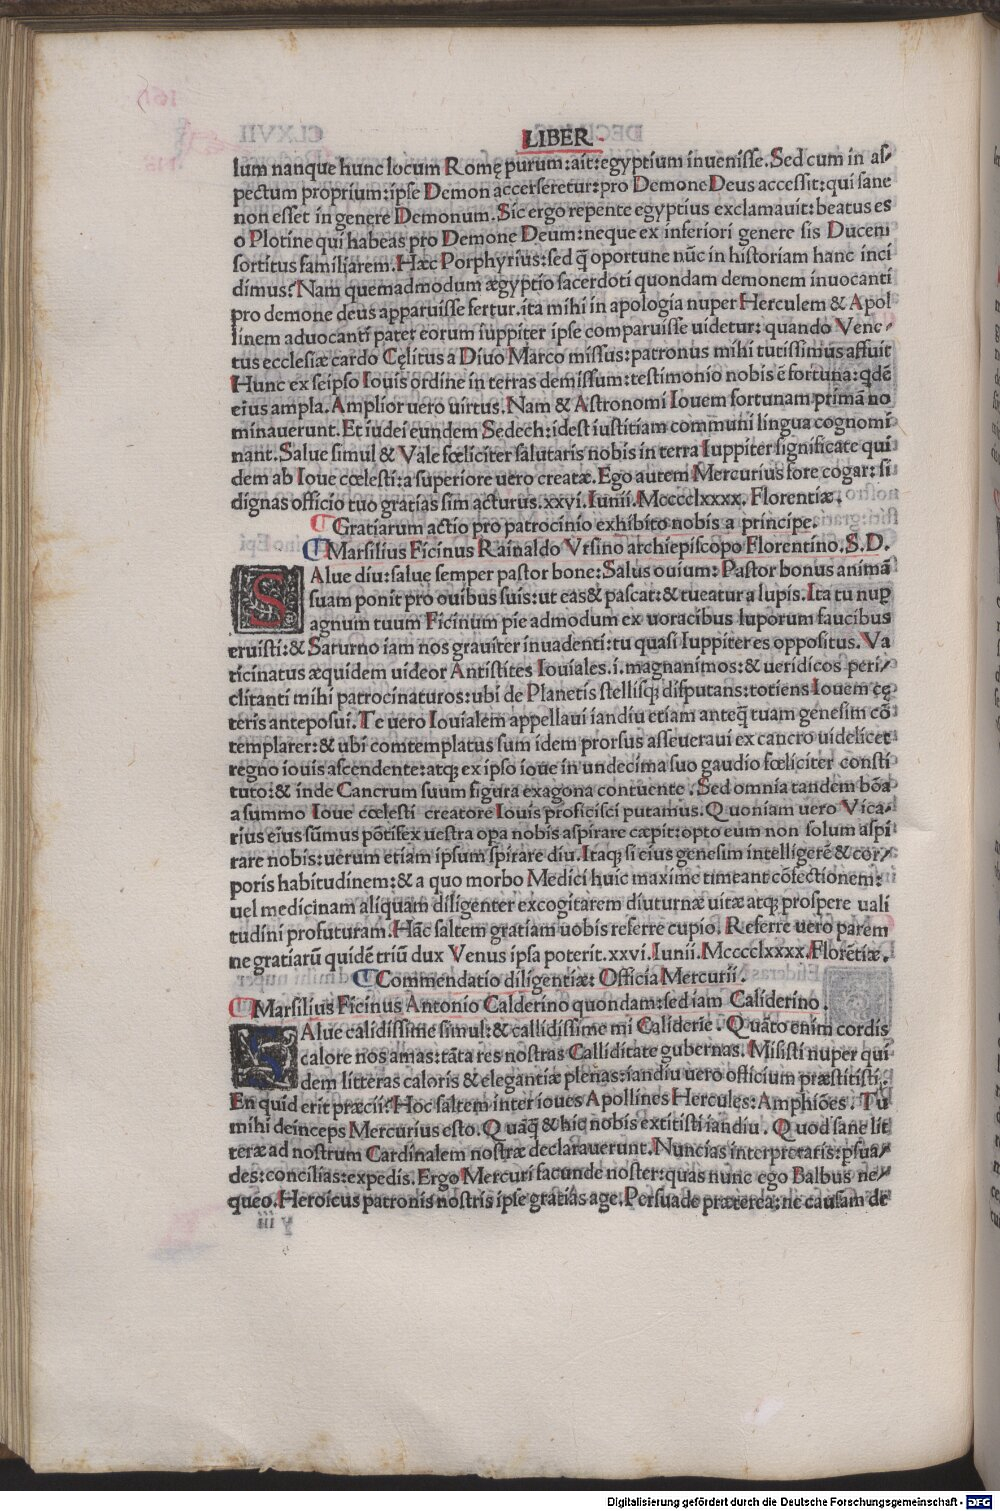 LIBER
lum nanque hunc locum Romę purum: ait: egyptium inuenisse. Sed cum in as-
pectum proprium: ipse Demon accerseretur: pro Demone Deus accessit: qui sane
non esset in genere Demonum. Sic ergo repente egyptius exclamauit: beatus es
o Plotine qui habeas pro Demone Deum: neque ex inferiori genere sis Ducem
sortitus familiarem. Hæc Porphyrius: sed q̃ oportune nũc in historiam hanc inci
dimus? Nam quemadmodum ægyptio sacerdoti quondam demonem inuocanti
pro demone deus apparuisse fertur. ita mihi in apologia nuper Herculem & Apol
linem aduocanti pater eorum iuppiter ipse comparuisse uidetur: quando Vene-
tus ecclesiæ cardo Cęlitus a Diuo Marco missus: patronus mihi tutissimus affuit
Hunc ex seipso Iouis ordine in terras demissum: testimonio nobis ē fortuna: qdē
eius ampla. Amplior uero uirtus. Nam & Astronomi Iouem fortunam primā no
minauerunt. Et iudei eundem Sedech: idest iustitiam communi lingua cognomi
nant. Salue simul & Vale fœliciter salutaris nobis in terra Iuppiter significate qui
dem ab Ioue cœlesti: a superiore uero creatæ. Ego autem Mercurius fore cogar: si
dignas officio tuo gratias sim acturus. xxvi. Iunii. Mcccclxxxx. Florentiæ.
Gratiarum actio pro patrocinio exhibito nobis a principe.
Marsilius Ficinus Rainaldo Vrsino archiepiscopo Florentino. S. D.
SAlue diu: salue semper pastor bone: Salus ouium: Pastor bonus animā
suam ponit pro ouibus suis: ut eas & pascat: & tueatur a lupis. Ita tu nup
agnum tuum Ficinum pie admodum ex uoracibus luporum faucibus
eruisti: & Saturno iam nos grauiter inuadenti: tu quasi Iuppiter es oppositus. Va
ticinatus æquidem uideor Antistites Iouiales. i. magnanimos: & ueridicos peri-
clitanti mihi patrocinaturos: ubi de Planetis stellisq; disputans: totiens Iouem cę
teris anteposui. Te uero Iouialem appellaui iandiu etiam anteq̃ tuam genesim cō
templarer: & ubi comtemplatus sum idem prorsus asseueraui ex cancro uidelicet
regno iouis ascendente: atq; ex ipso ioue in undecima suo gaudio fœliciter consti
tuto: & inde Cancrum suum figura exagona contuente. Sed omnia tandem bōa
a summo Ioue cœlesti creatore Iouis proficisci putamus. Quoniam uero Vica-
rius eius sūmus pōtifex uestra opa nobis aspirare cæpit: opto eum non solum aspi
rare nobis: uerum etiam ipsum spirare diu. Itaq; si eius genesim intelligerē & cor-
poris habitudinem: & a quo morbo Medici huic maxime timeant cōfectionem:
uel medicinam aliquam diligenter excogitarem diuturnæ uitæ atq; prospere uali
tudini profuturam. Hāc saltem gratiam uobis referre cupio. Referre uero parem
ne gratiarū quidē triū dux Venus ipsa poterit. xxvi. Iunii. Mcccclxxxx. Florētiæ.
Commendatio diligentiæ: Officia Mercurii.
Marsilius Ficinus Antonio Calderino quondam: sed iam Caliderino.
SAlue calidissime simul: & callidissime mi Caliderie. Quāto enim cordis
calore nos amas: tāta res nostras Calliditate gubernas. Misisti nuper qui
dem litteras caloris & elegantiæ plenas: iandiu uero officium præstitisti.
En quid erit præcii? Hoc saltem inter ioues Apollines Hercules: Amphiōes. Tu
mihi deinceps Mercurius esto. Quāq̃ & hic nobis extitisti iandiu. Quod sane lit
teræ ad nostrum Cardinalem nostræ declarauerunt. Nuncias interpretaris: psua-
des: concilias: expedis. Ergo Mercuri facunde noster: quas nunc ego Balbus ne-
queo. Heroicus patronis nostris ipse gratias age. Persuade præterea: ne causam de
Digitalisierung gefördert durch die Deutsche Forschungsgemeinschaft - DFG